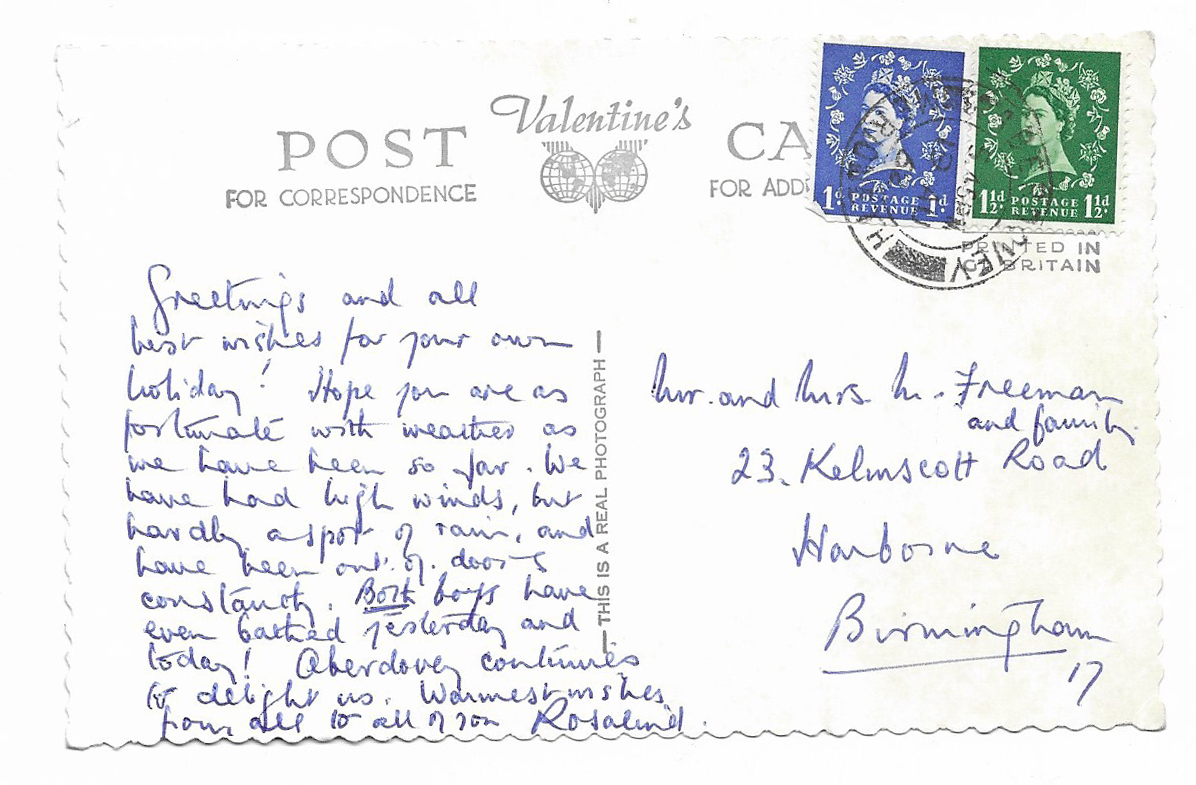 Valentine's
POST CA
FOR CORRESPONDENCE FOR ADD
1d POSTAGE REVENUE 1d
1½d POSTAGE REVENUE 1½d
PRINTED IN
GT BRITAIN
Greetings and all
best wishes for your own
holiday! Hope you are as
fortunate with weather as
we have been so far. We
have had high winds, but
hardly a spot of rain, and
have been out of doors
constantly. Both boys have
even bathed yesterday and
today! Aberdovey continues
to delight us. Warmest wishes
from all to all of you Rosalind.
THIS IS A REAL PHOTOGRAPH
Mr. and Mrs. M. Freeman
and family.
23. Kelmscott Road
Harborne
Birmingham
17